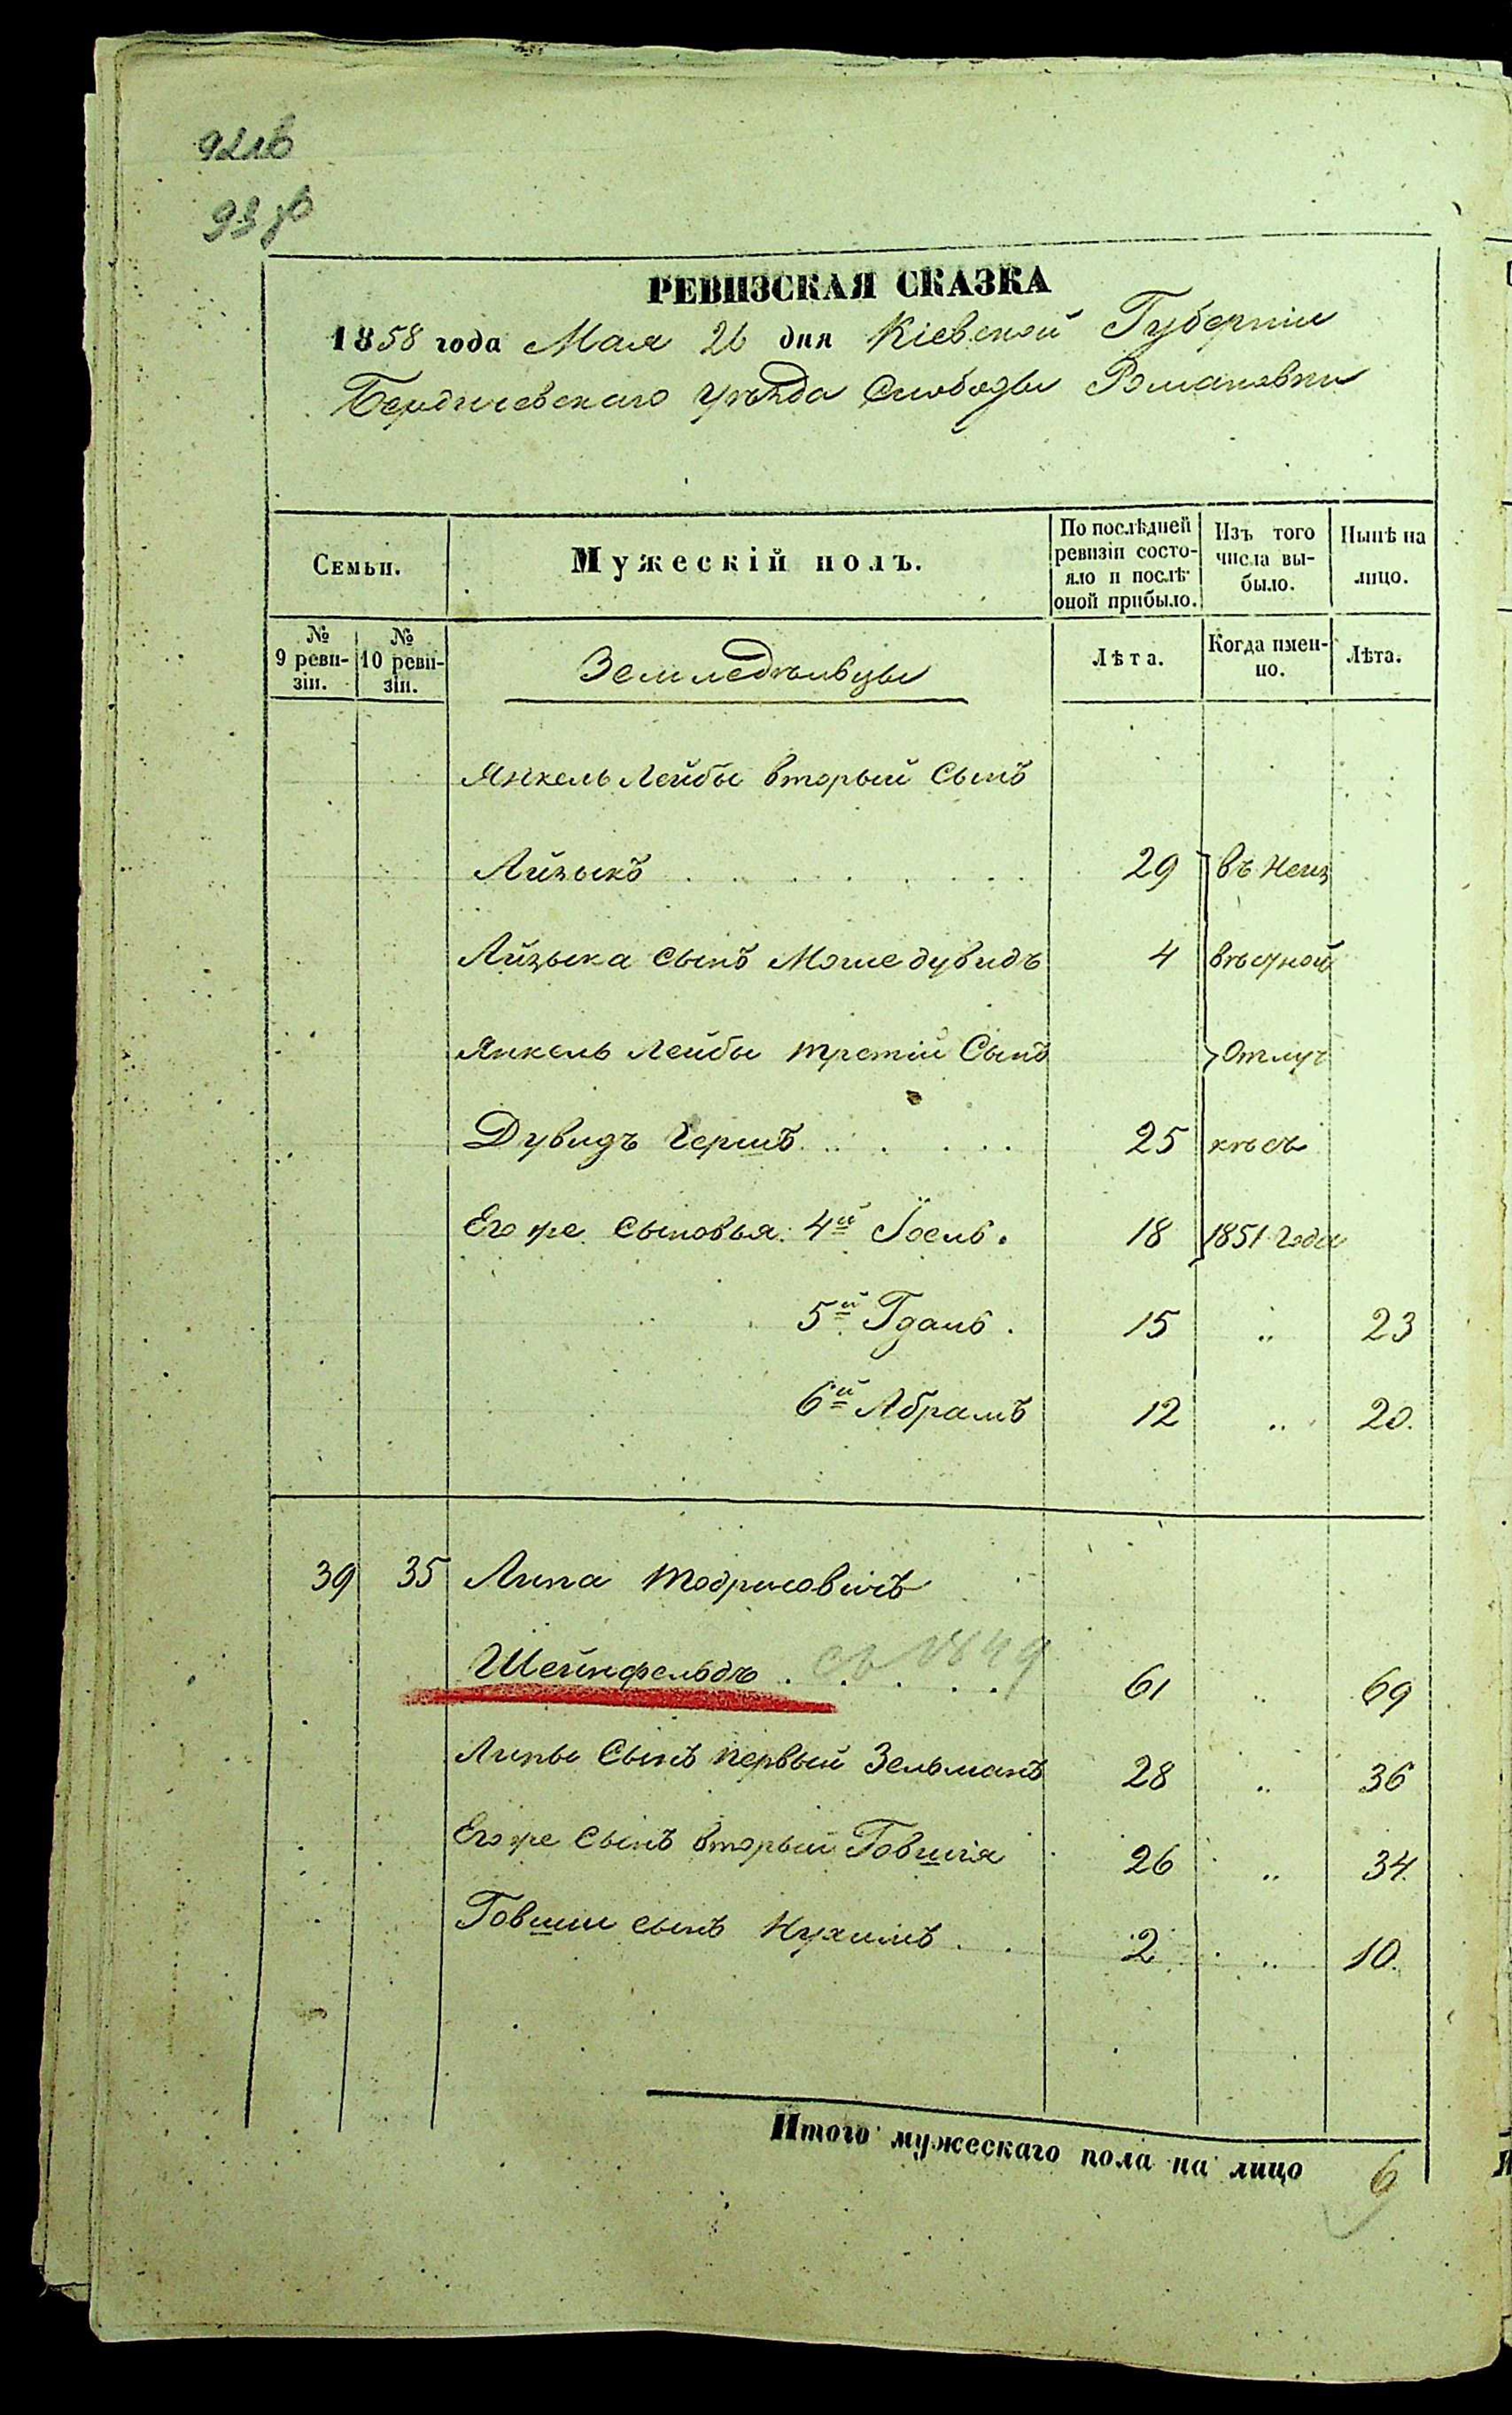 РЕВИЗСКАЯ СКАЗКА
1858 года Мая 26 дня Кіевской Губерніи
Бердичевскаго Уѣзда Слободы Романовки
Семьи.
Мужескій полъ.
По послѣдней ревизіи состояло и послѣ оной прибыло.
Изъ того числа выбыло.
Нынѣ на лицо.
№ 9 ревизіи.
№ 10 ревизіи.
Земледѣльцы
Лѣта.
Когда именно.
Лѣта.
Янкель Лейбы вторый Сынъ
Айзыкъ 29 въ неиз
Айзыка Сынъ Мошедувидъ 4 вѣстной
Янкель Лейбы третій Сынъ отлуч
Дувидъ Гершъ 25 кѣ съ
Его же Сыновья: 4й Іосль. 18 1851 года
5й Гдаль. 15 " 23
6й Абрамъ 12 " 20.
39 35 Липа Тодрисовичъ
Шейнфельдъ 61 " 69
съ 1849
Липы Сынъ первый Зельманъ 28 " 36
Его же Сынъ вторый Говшія 26 " 34.
Говшіи сынъ Нухимъ 2 " 10.
Итого мужескаго пола на лицо 6